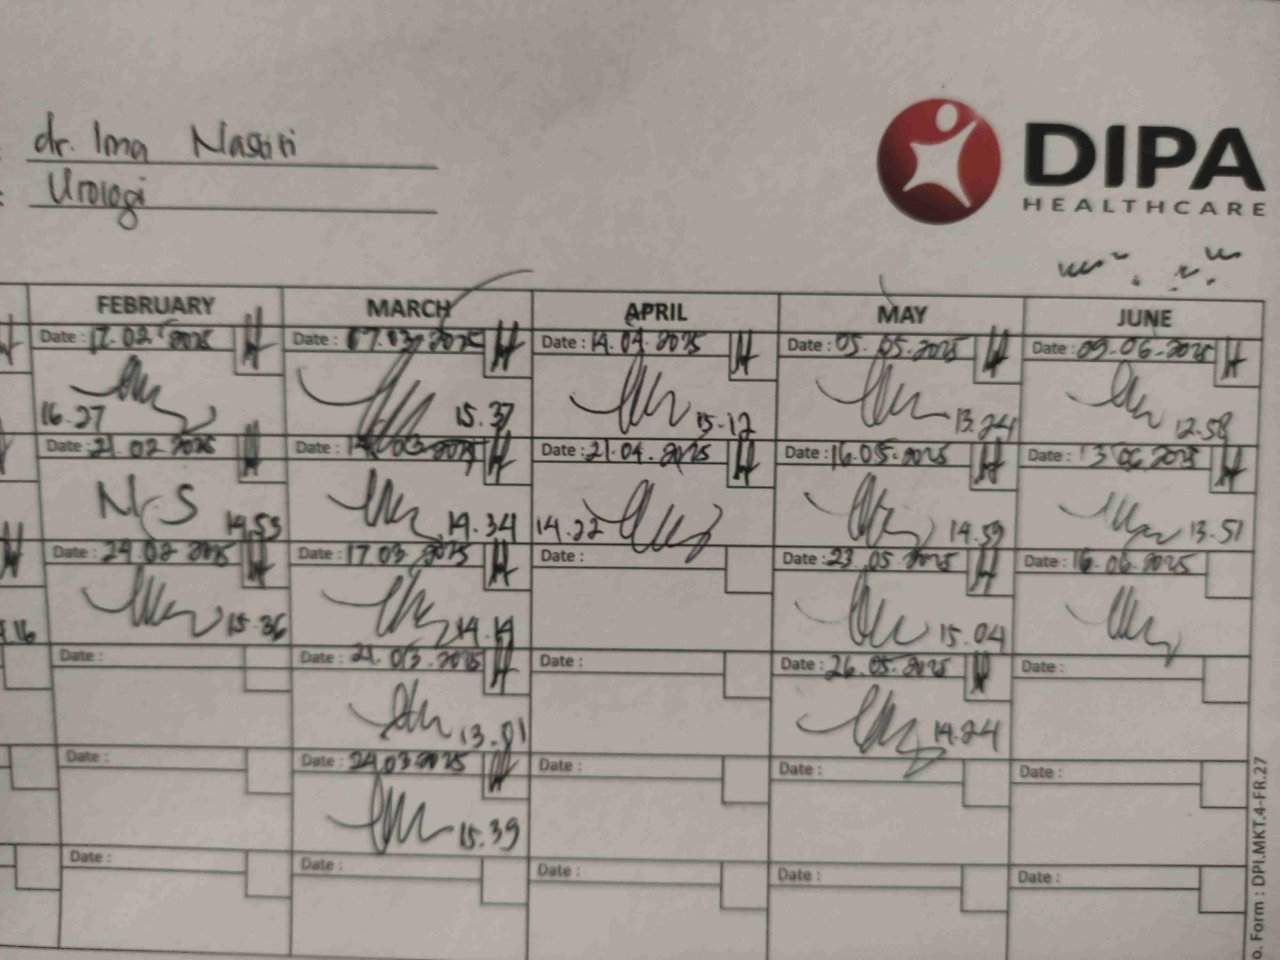 : dr. Ima Nastiti
: Urologi
DIPA
HEALTHCARE
FEBRUARY MARCH APRIL MAY JUNE
Date : 17.02.2025 Date : 07.03.2025 Date : 14.04.2025 Date : 05.05.2025 Date : 09.06.2025
16.27 15.37 15.12 13.24 12.58
Date : 21.02.2025 Date : 14.03.2025 Date : 21.04.2025 Date : 16.05.2025 Date : 13.06.2025
N.S 14.53 14.34 14.22 14.59 13.51
Date : 24.02.2025 Date : 17.03.2025 Date : Date : 23.05.2025 Date : 16.06.2025
15.36 14.14 15.04
Date : Date : 21.03.2025 Date : Date : 26.05.2025 Date :
13.01 14.24
Date : Date : 24.03.2025 Date : Date : Date :
15.39
Date : Date : Date : Date : Date :
o. Form : DPI.MKT.4-FR.27